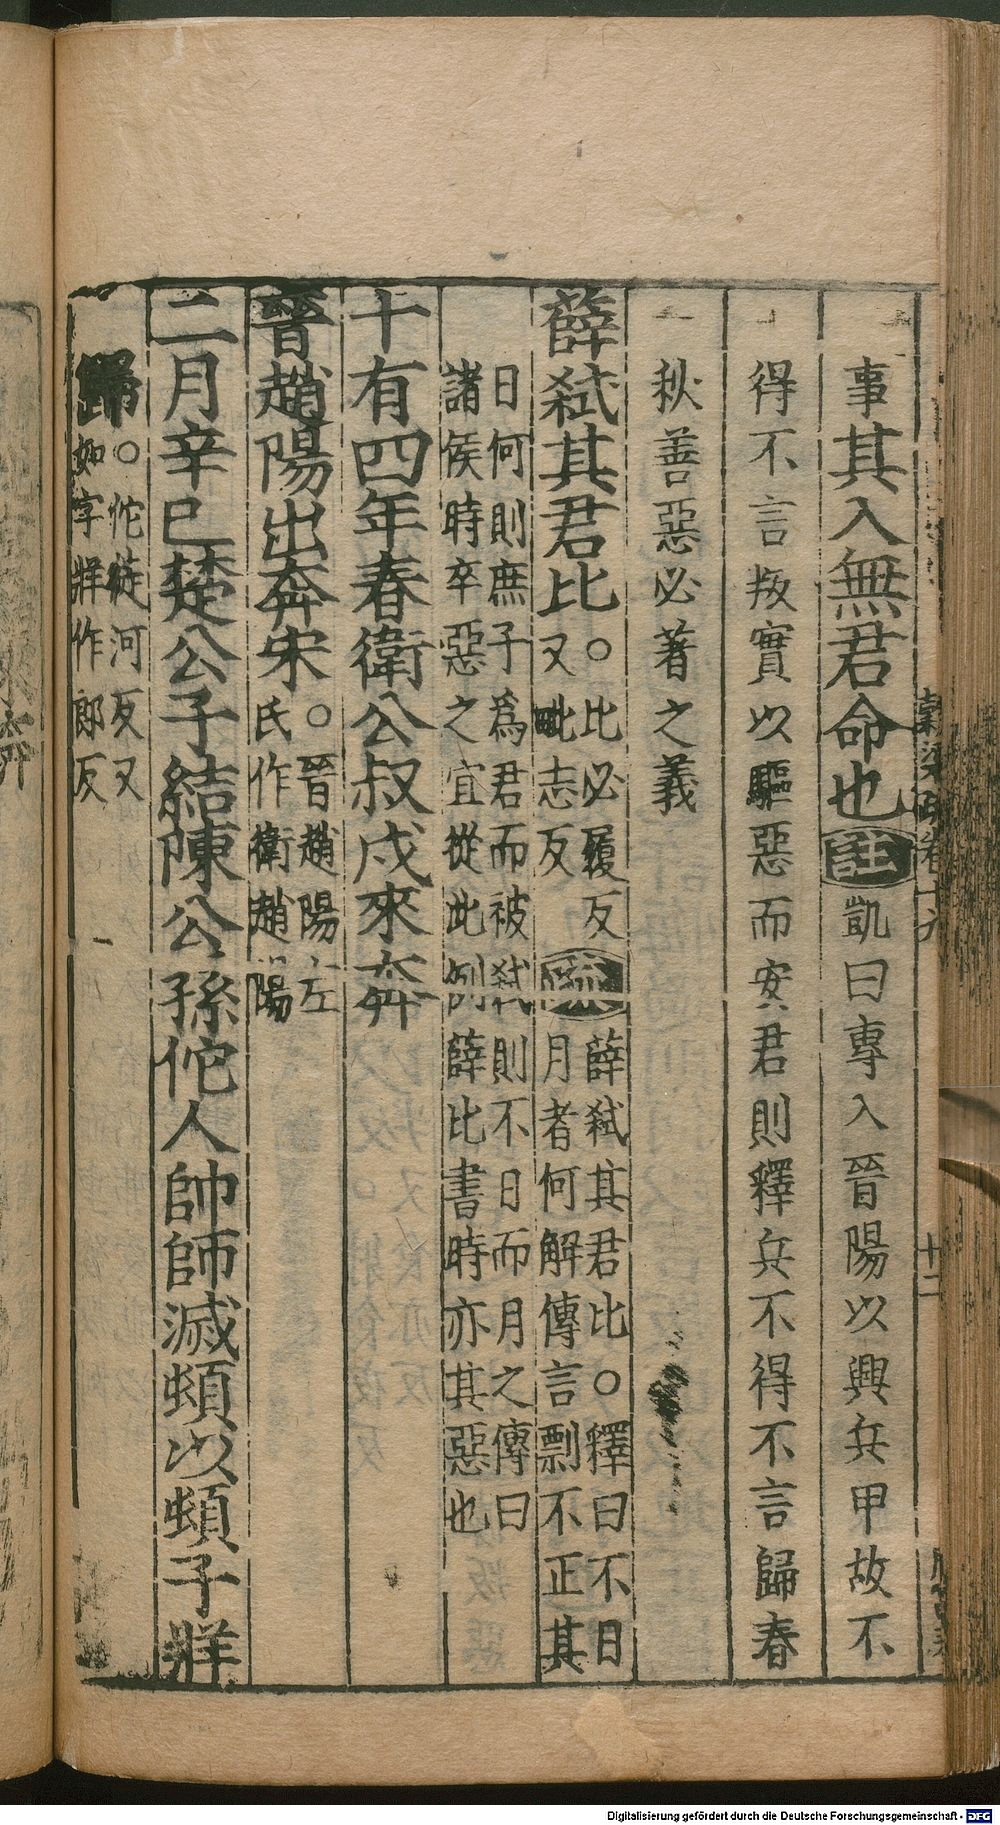 事其入無君命也註凱曰專入晉陽以興兵甲故不
得不言叛實以驅惡而安君則釋兵不得不言歸春
秋善惡必著之義
薛弒其君比○比必履反
又毗志反疏薛弒其君比○釋曰不日
月者何解傳言剽不正其
日何則庶子為君而被弒則不日而月之傳曰
諸侯時卒惡之宜從此例薛比書時亦其惡也
十有四年春衛公叔戍來奔
晉趙陽出奔宋○晉趙陽左
氏作衛趙陽
二月辛巳楚公子結陳公孫佗人帥師滅頓以頓子牂
歸○佗徒河反又
如字牂作郎反
十二
Digitalisierung gefördert durch die Deutsche Forschungsgemeinschaft - DFG